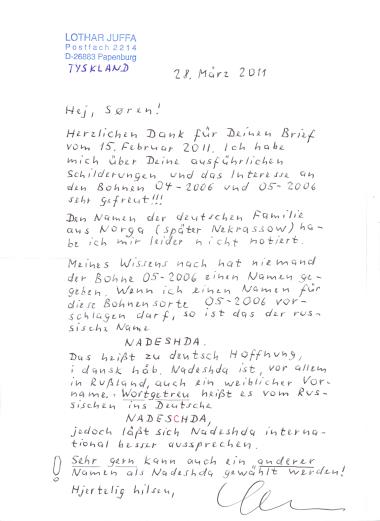 LOTHAR JUFFA
Postfach 2214
D-26883 Papenburg
TYSKLAND
28. März 2011
Hej, Søren!
Herzlichen Dank für Deinen Brief
vom 15. Februar 2011. Ich habe
mich über Deine ausführlichen
Schilderungen und das Interesse an
den Bohnen 04-2006 und 05-2006
sehr gefreut!!!
Den Namen der deutschen Familie
aus Norga (später Nekrassow) ha-
be ich mir leider nicht notiert.
Meines Wissens nach hat niemand
der Bohne 05-2006 einen Namen ge-
geben. Wenn ich einen Namen für
diese Bohnensorte 05-2006 vor-
schlagen darf, so ist das der rus-
sische Name
NADESHDA.
Das heißt zu deutsch Hoffnung,
i dansk håb. Nadeshda ist, vor allem
in Rußland, auch ein weiblicher Vor-
name. Wortgetreu heißt es vom Rus-
sischen ins Deutsche
NADESCHDA,
jedoch läßt sich Nadeshda interna-
tional besser aussprechen.
! Sehr gern kann auch ein anderer
Namen als Nadeshda gewählt werden!
Hjertelig hilsen,